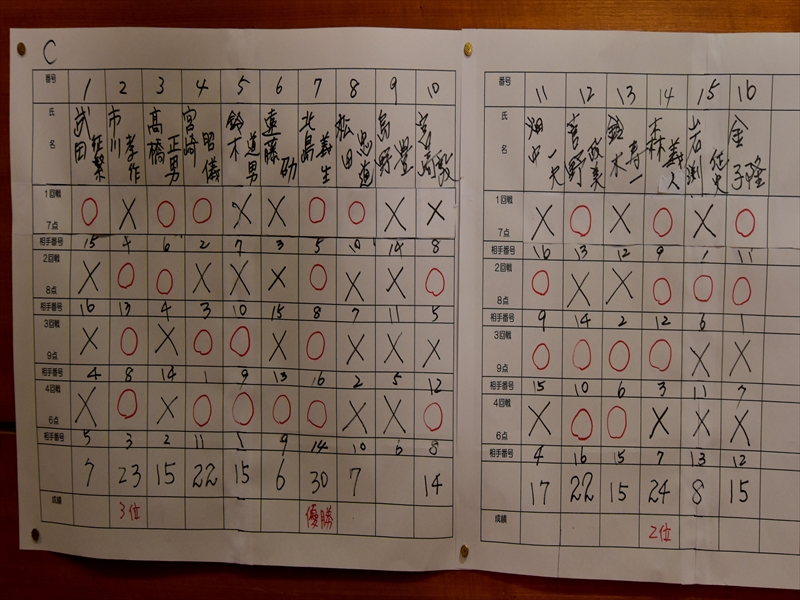 C
番号 1 2 3 4 5 6 7 8 9 10
氏名 武田 市川孝作 高橋正男 宮崎昭儀 鈴木道男 遠藤功 北島義生 松田忠道 島野豊
1回戦 ○ × ○ ○ × × ○ ○ × ×
7点
相手番号 15 4 6 2 7 3 5 10 14 8
2回戦 × ○ ○ × × × ○ × × ○
8点
相手番号 16 13 4 3 10 15 8 7 11 5
3回戦 × ○ × ○ ○ × ○ × × ×
9点
相手番号 4 8 14 1 9 13 16 2 5 12
4回戦 × ○ × ○ ○ ○ ○ × × ○
6点
相手番号 5 3 2 11 1 9 14 10 6 8
7 23 15 22 15 6 30 7 14
成績 3位 優勝
番号 11 12 13 14 15 16
氏名 畑中一夫 鈴木寿一 森義人 岩渕征史 金子隆
1回戦 × ○ × ○ × ○
7点
相手番号 16 13 12 9 1 11
2回戦 ○ × × ○ ○ ○
8点
相手番号 9 14 2 12 6 1
3回戦 ○ ○ ○ ○ × ×
9点
相手番号 15 10 6 3 11 7
4回戦 × ○ ○ × × ×
6点
相手番号 4 16 15 7 13 12
17 22 15 24 8 15
成績 2位